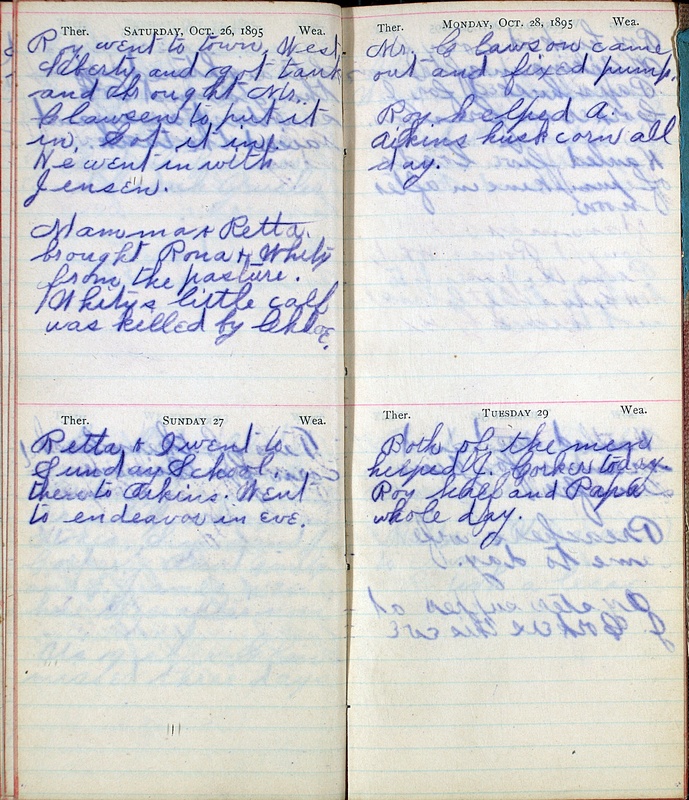 Ther. SATURDAY, OCT. 26, 1895 Wea.
Roy went to town, West
Liberty and got tank
and brought Mr.
Clawsen to put it
in. Got it in.
He went in with
Jensen.
Mamma + Retta
brought Rona + Whity
from the pasture.
Whitys little calf
was killed by Chloe.
Ther. SUNDAY 27 Wea.
Retta + I went to
Sunday School,
then to Aikins. Went
to endeavor in eve.
Ther. MONDAY, OCT. 28, 1895 Wea.
Mr. Clawson came
out and fixed pump.
Roy helped A.
Aikins husk corn all
day.
Ther. TUESDAY 29 Wea.
Both of the men
helped J. Corkes today.
Roy half and Papa
whole day.